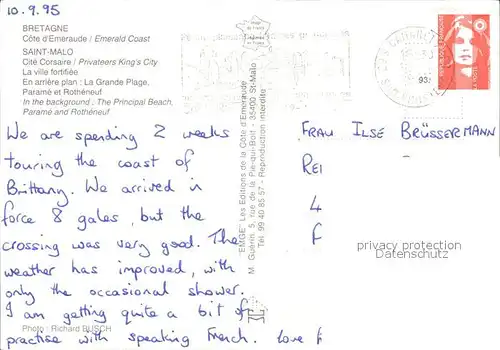 10.9.95
BRETAGNE
Côte d'Emeraude / Emerald Coast
SAINT-MALO
Cité Corsaire / Privateers King's City
La ville fortifiée
En arrière plan : La Grande Plage,
Paramé et Rothéneuf
In the background : The Principal Beach,
Paramé and Rothéneuf
We are spending 2 weeks
touring the coast of
Brittany. We arrived in
force 8 gales, but the
crossing was very good. The
weather has improved, with
only the occasional shower.
I am getting quite a bit of
practise with speaking French. Love
Photo : Richard BUSCH
"EMGE" Les Editions de la Côte d'Emeraude
M. Guérin, 5, rue de la Pie-qui-Boit - 35400 St-Malo
Tél. 99 40 85 57 - Reproduction interdite
FRAU ILSE BRÜSSERMANN
REI
4
F
privacy protection
Datenschutz